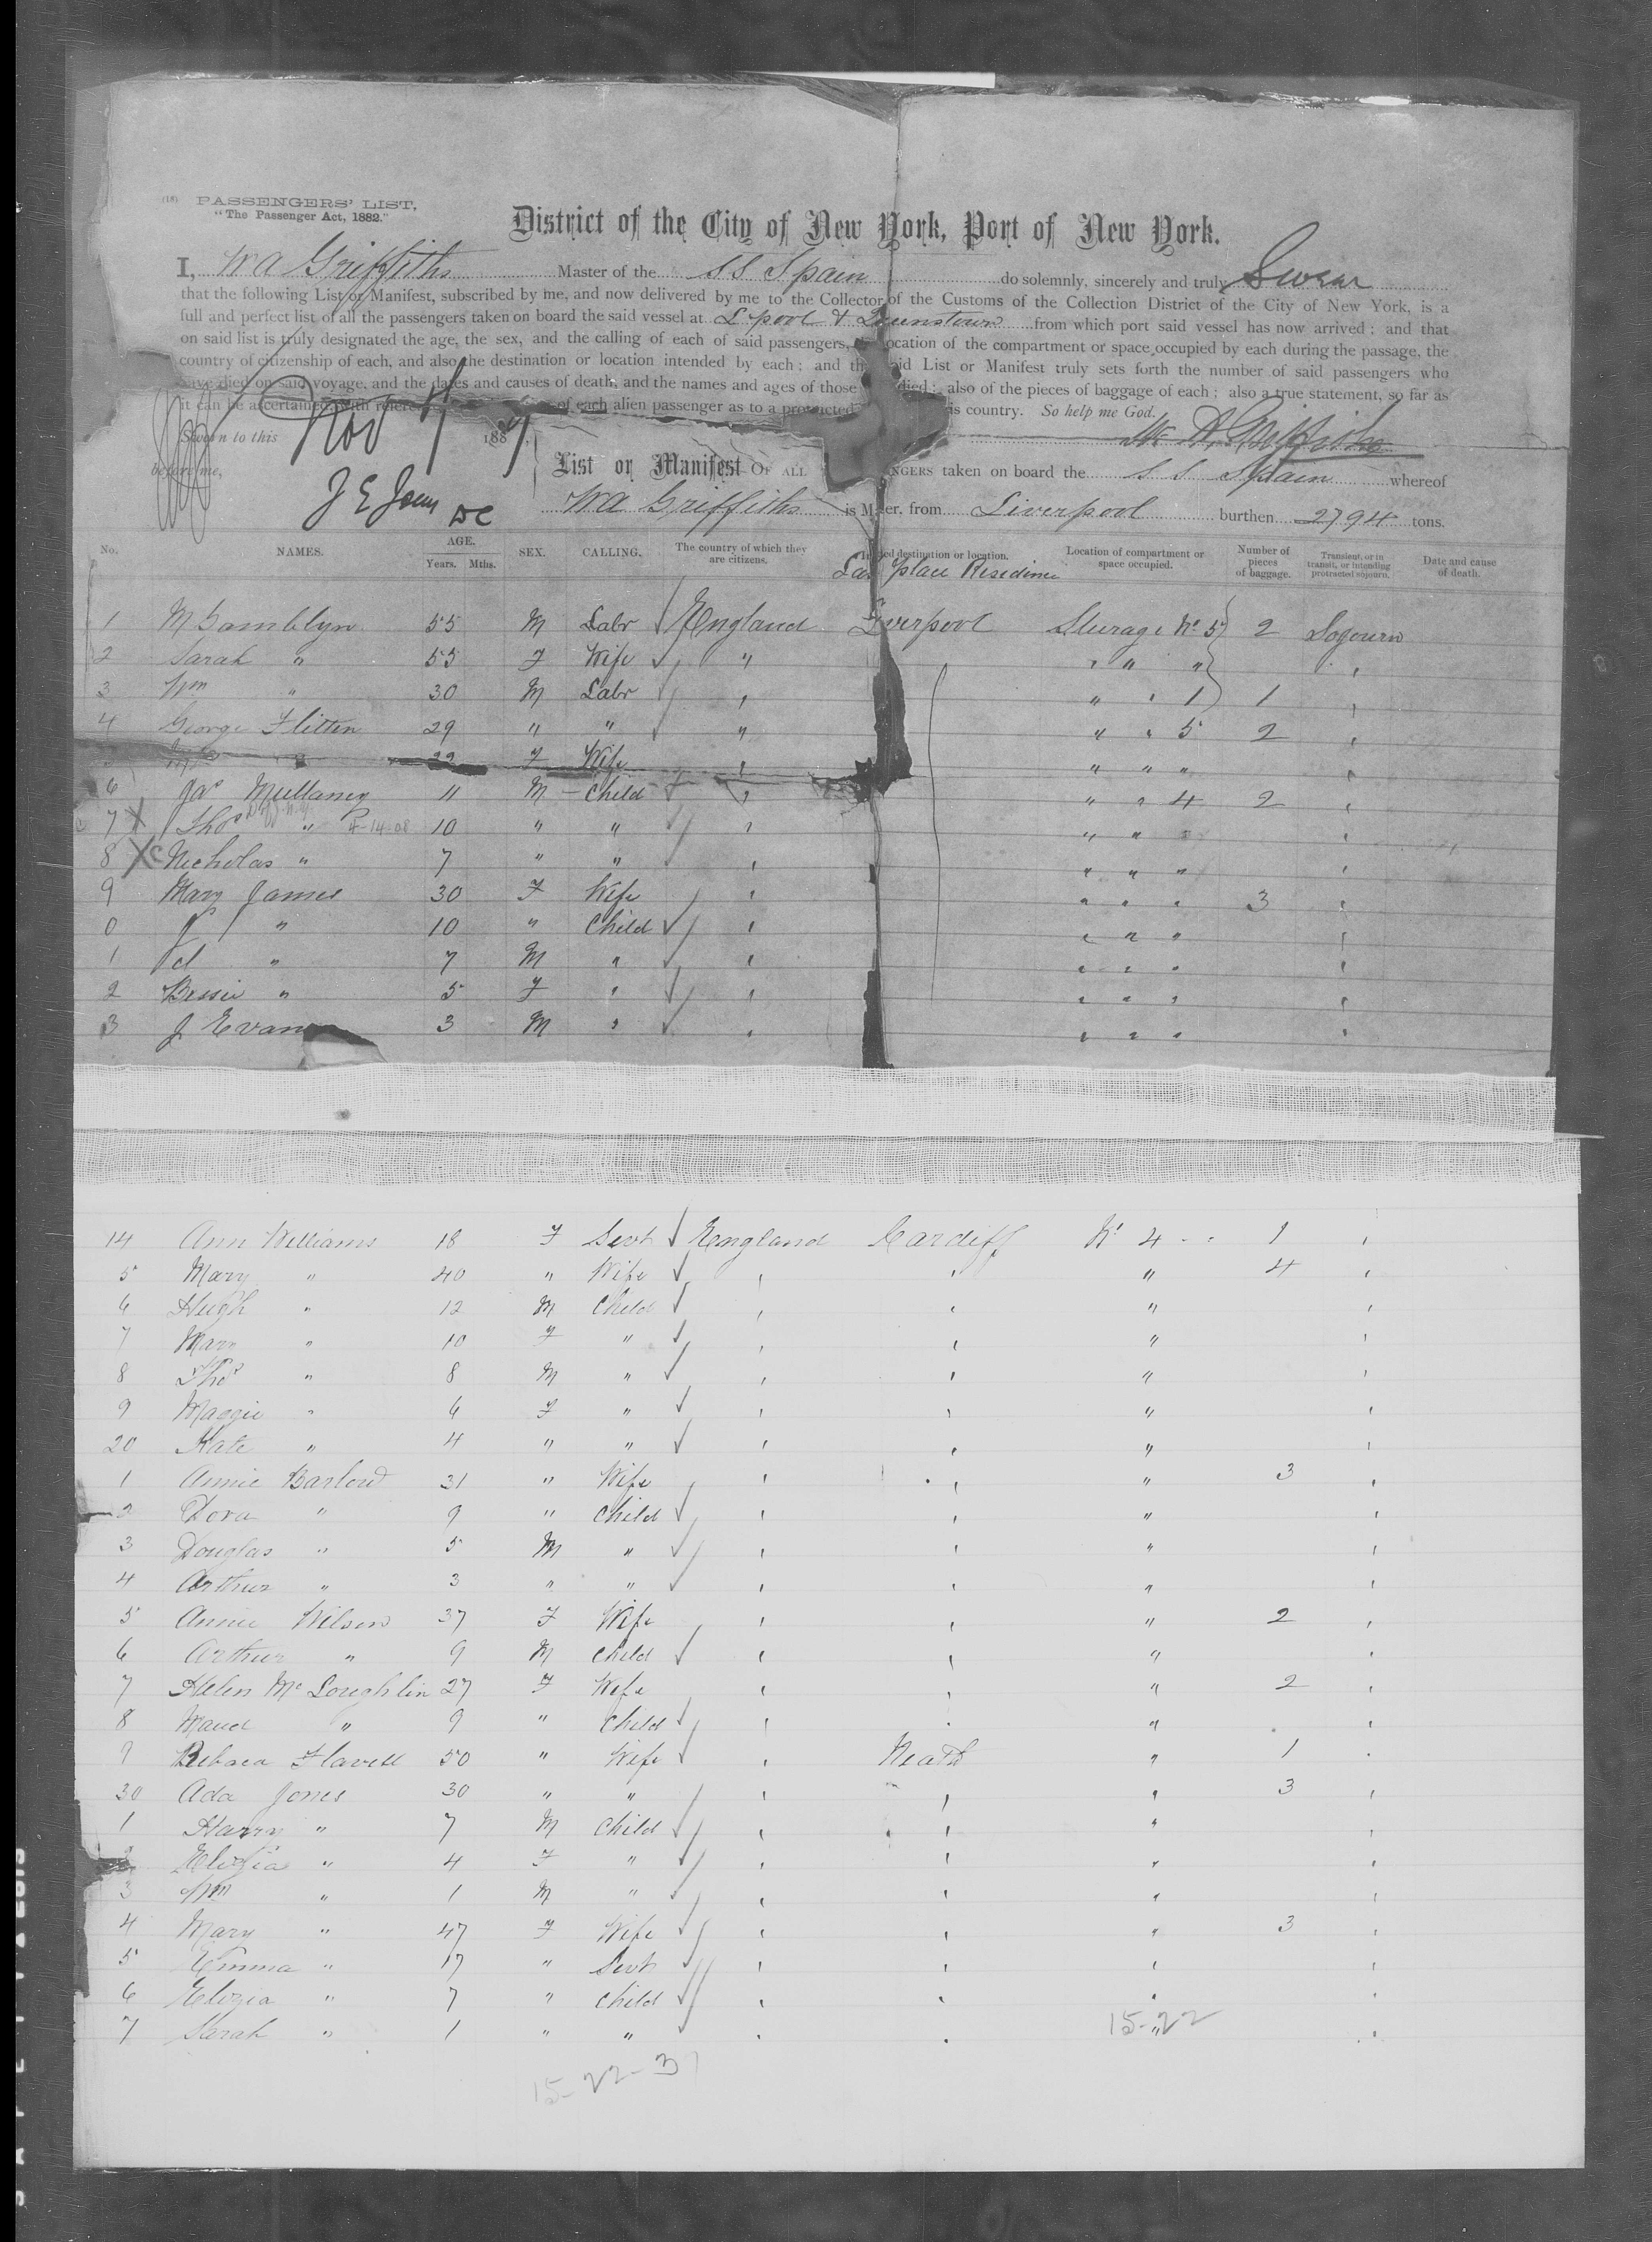 (18) PASSENGERS' LIST.
"The Passenger Act, 1882."
District of the City of New York, Port of New York.
I, W A Griffiths Master of the S S Spain do solemnly, sincerely and truly Swear
that the following List or Manifest, subscribed by me, and now delivered by me to the Collector of the Customs of the Collection District of the City of New York, is a
full and perfect list of all the passengers taken on board the said vessel at L'pool & Queenstown from which port said vessel has now arrived; and that
on said list is truly designated the age, the sex, and the calling of each of said passengers, location of the compartment or space occupied by each during the passage, the
country of citizenship of each, and also the destination or location intended by each; and th said List or Manifest truly sets forth the number of said passengers who
have died on said voyage, and the dates and causes of death, and the names and ages of those died; also of the pieces of baggage of each; also a true statement, so far as
it can be ascertained, with refere of each alien passenger as to a protracted is country. So help me God.
Sworn to this Nov 7 1887 W A Griffiths
before me,
List or Manifest OF ALL NGERS taken on board the S S Spain whereof
J E Jones DC
W A Griffiths is M er, from Liverpool burthen 2794 tons.
No. NAMES. AGE. Years. Mths. SEX. CALLING. The country of which they are citizens. destination or location. Location of compartment or space occupied. Number of pieces of baggage. Transient, or in transit, or intending protracted sojourn. Date and cause of death.
Las Place Residence
1 M Gamblyn 55 M Labr England Liverpool Steerage No 5 2 Sojourn
2 Sarah " 55 F Wife " " " "
3 Wm " 30 M Labr " " " 1 1 "
4 George Flitten 29 " " " " " 5 2 "
22 F Wife " " " " "
6 Jas Mullaney 11 M Child " " " 4 2 "
7 X Thos " 4-14-08 10 " " " " " " "
8 X C Nicholas " 7 " " " " " " "
9 Mary James 30 F Wife " " " " 3 "
0 J " 10 " Child " " " " "
1 " 7 M " " " " " "
2 Bessie " 5 F " " " " " "
3 J Evan 3 M " " " " " "
14 Ann Williams 18 F Servt England Cardiff No 4 " " 1 "
5 Mary " 40 " Wife " " " 4 "
6 Hugh " 12 M Child " " " "
7 Mary " 10 F " " " " "
8 Thos " 8 M " " " " "
9 Maggie " 6 F " " " " "
20 Kate " 4 " " " " " "
1 Annie Barlow 31 " Wife " " " 3 "
2 Dora " 9 " Child " " " "
3 Douglas " 5 M " " " " "
4 Arthur " 3 " " " " " "
5 Annie Wilson 37 F Wife " " " 2 "
6 Arthur " 9 M Child " " " "
7 Helen McLoughlin 27 F Wife " " " 2 "
8 Maud " 9 " Child " " " "
9 Rebaca Flavell 50 " Wife " Neath " 1 "
30 Ada Jones 30 " " " " " 3 "
1 Harry " 7 M Child " " " "
Eliza " 4 F " " " " "
3 Wm " 1 M " " " " "
4 Mary " 47 F Wife " " " 3 "
5 Emma " 17 " Servt " " " "
6 Eliza " 7 " Child " " " "
7 Sarah " 1 " " " " " "
15-22
15-22-3